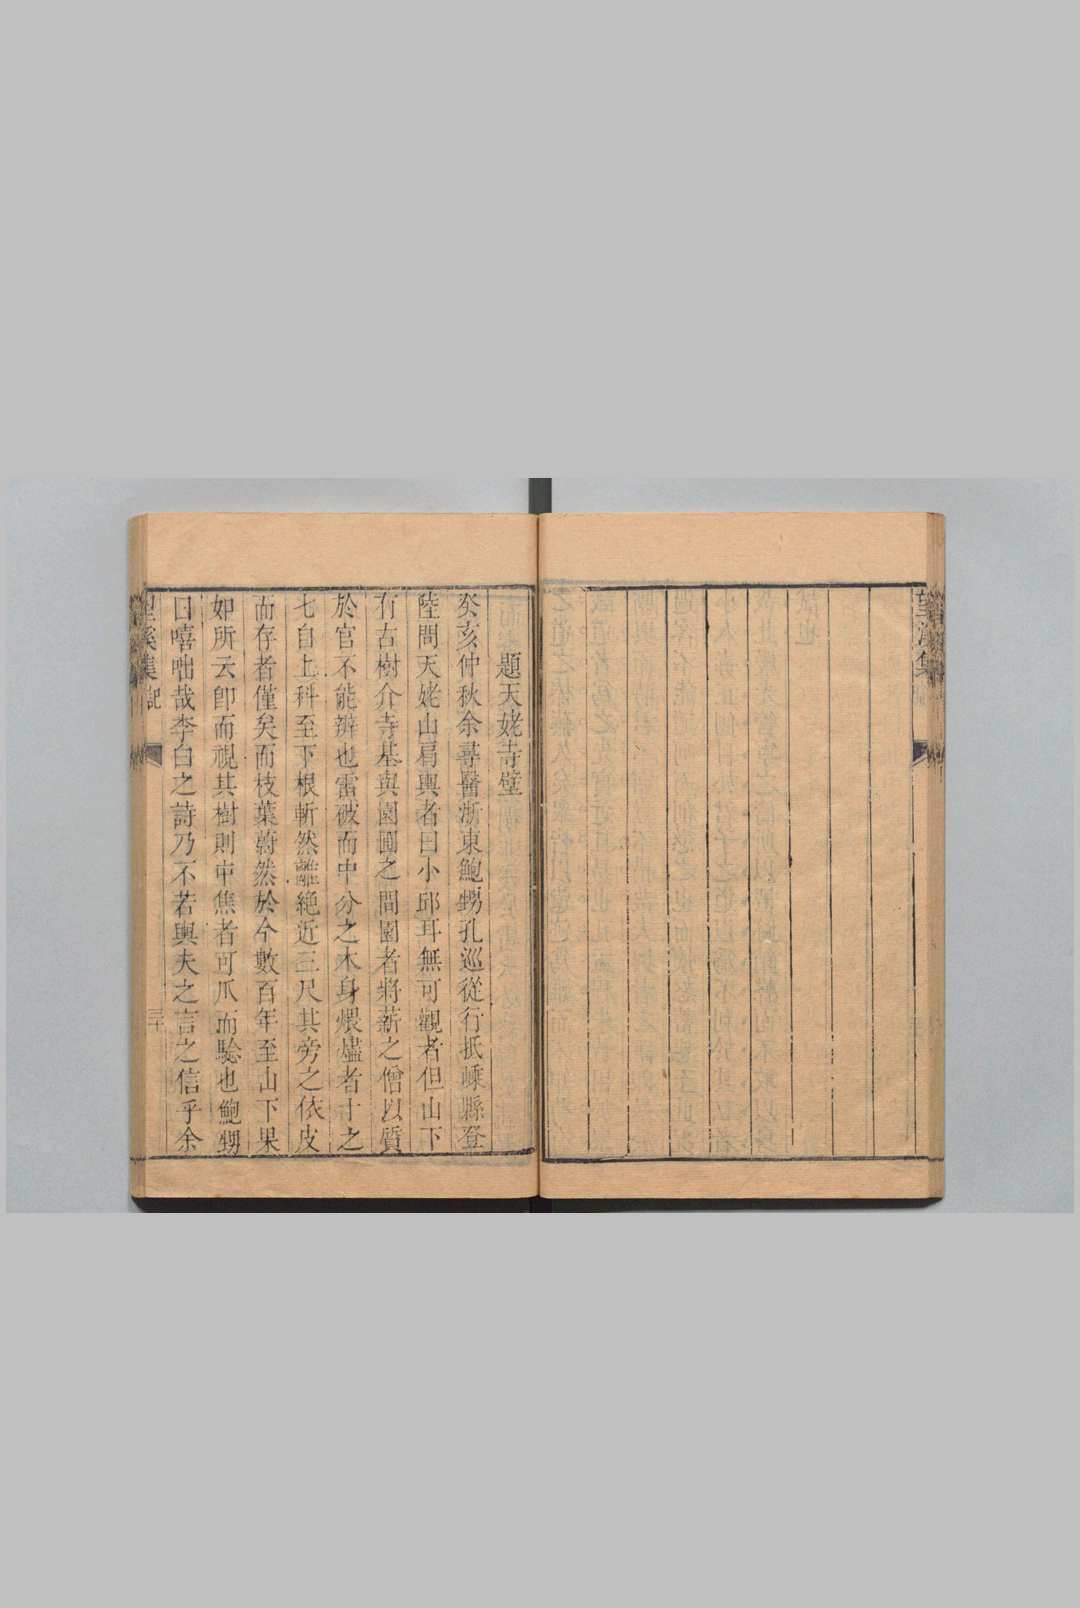 望溪集
題天姥寺壁
癸亥仲秋余尋醫浙東鮑甥孔巡從行抵嵊縣登
陸問天姥山肩輿者曰小邱耳無可觀者但山下
有古樹介寺基與園圃之間園者將薪之僧以質
於官不能辨也雷破而中分之木身煨燼者十之
七自上科至下根斬然離絕近三尺其旁之依皮
而存者僅矣而枝葉蔚然於今數百年至山下果
如所云卽而視其樹則中焦者可爪而騐也鮑甥
曰嘻咄哉李白之詩乃不若輿夫之言之信乎余
望溪集 記 三十